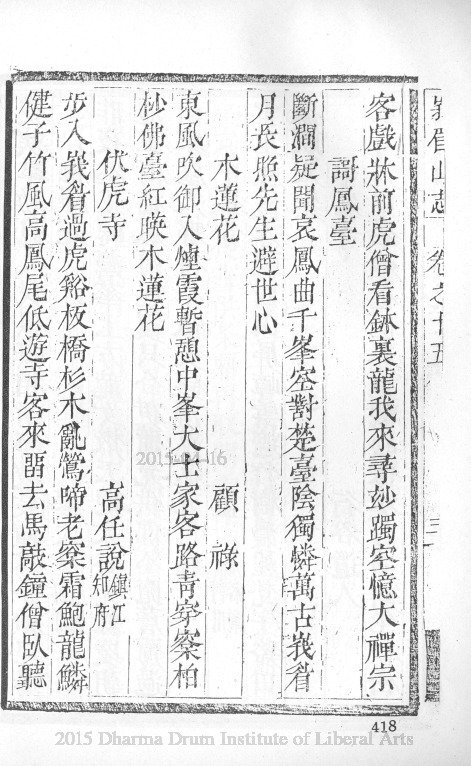 峩眉山志 卷之十五 三
客戲牀前虎僧看鉢裏龍我來尋玅躅空憶大禪宗
謌鳳臺
斷澗疑聞哀鳳曲千峯空對楚臺陰獨憐萬古峩眉
月長照先生避世心
木蓮花 顧祿
東風吹御入煙霞暫憩中峯大士家客路靑穿寀柏
杪佛臺紅暎木蓮花
伏虎寺 高任說 鎮江知府
步入峩眉過虎谿板橋杉木亂鶯啼老寀霜鮑龍鱗
健子竹風高鳳尾低遊寺客來畱去馬敲鐘僧臥聽
418
2015-04-16
2015 Dharma Drum Institute of Liberal Arts